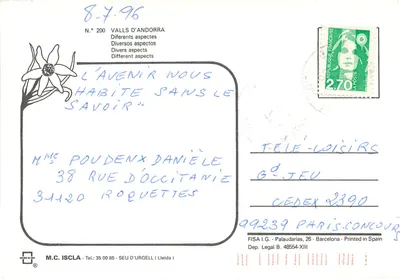 8-7-96
N.º 200 VALLS D'ANDORRA
Diferents aspectes
Diversos aspectos
Divers aspects
Different aspects
2,70
"L'AVENIR NOUS
HABITE SANS LE
SAVOIR"
MME POUDENX DANIÈLE
38 RUE D'OCCITANIE
31120 ROQUETTES
TÉLÉ-LOISIRS
Gd JEU
CEDEX 2390
99239 PARIS CONCOURS
FISA I.G. - Palaudarias, 26 - Barcelona - Printed in Spain
Dep. Legal B. 48554-XIII
M.C. ISCLA - Tel.: 35 09 85 - SEU D'URGELL (Lleida)